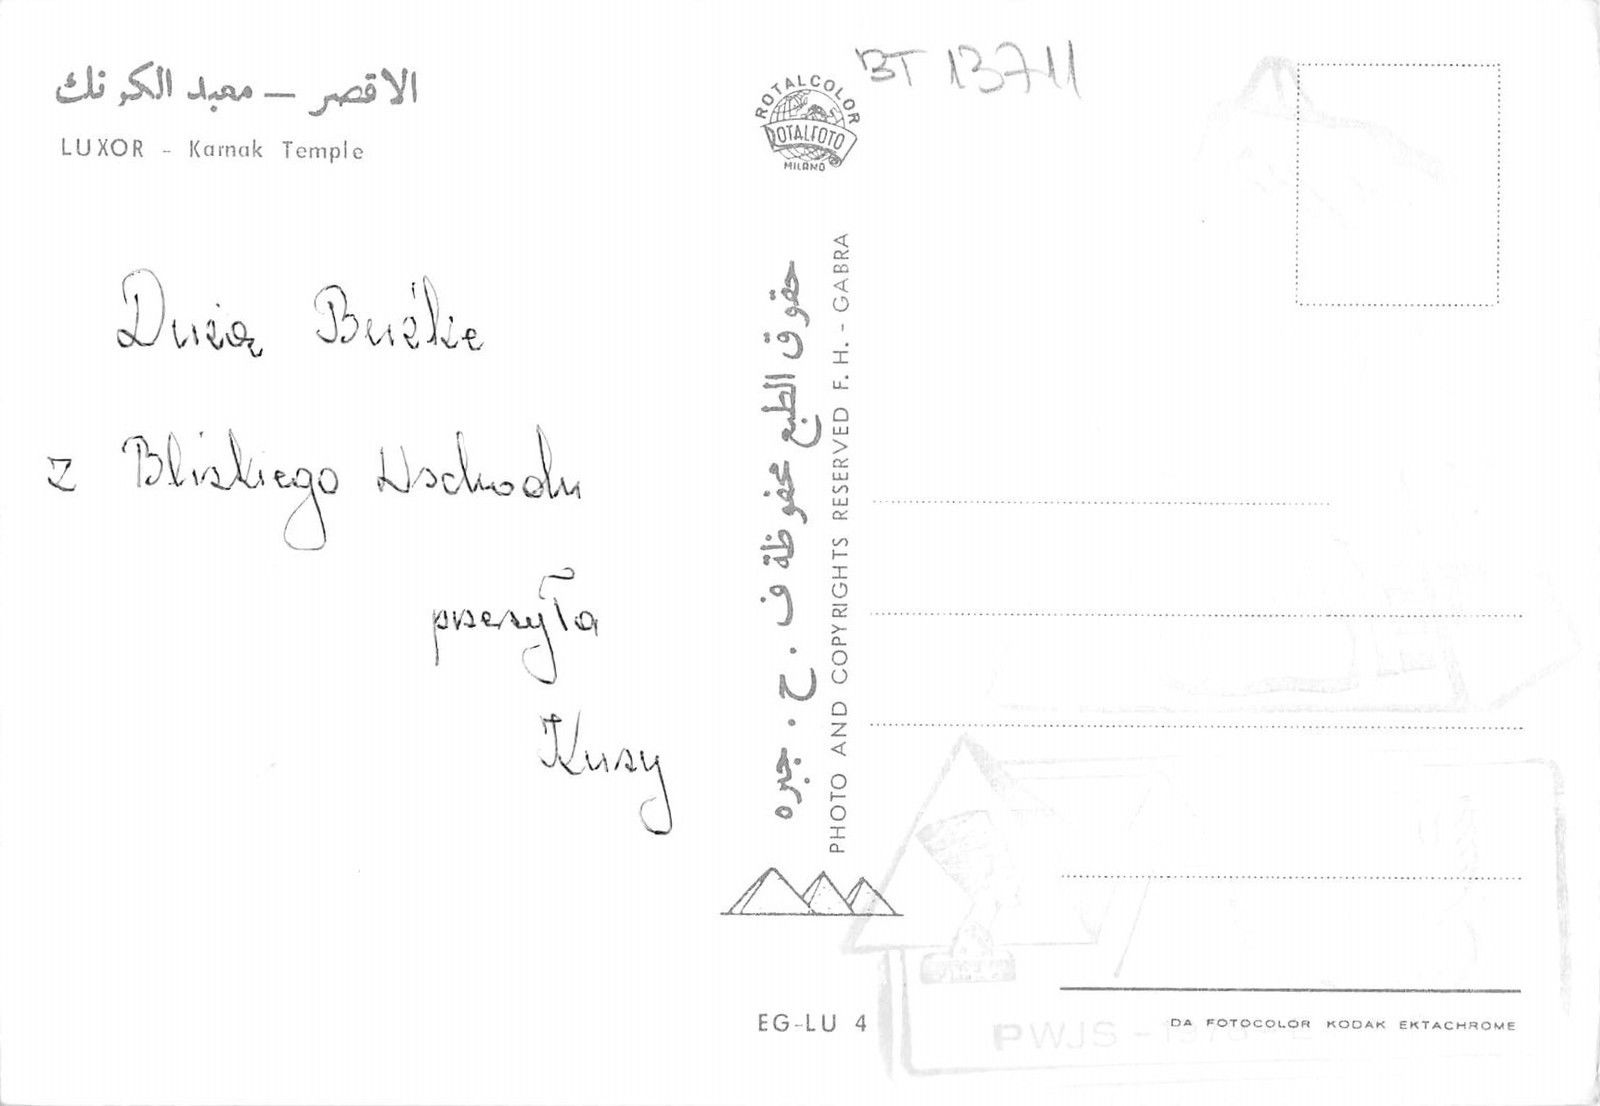 الاقصر – معبد الكرنك
LUXOR - Karnak Temple
BT 13711
ROTALCOLOR
ROTALFOTO
MILANO
Dużą Buźkę
z Bliskiego Wschodu
przesyła
Kuzy
حقوق الطبع محفوظة ف . ح . جبره
PHOTO AND COPYRIGHTS RESERVED F. H. - GABRA
EG-LU 4
DA FOTOCOLOR KODAK EKTACHROME
PWJS -